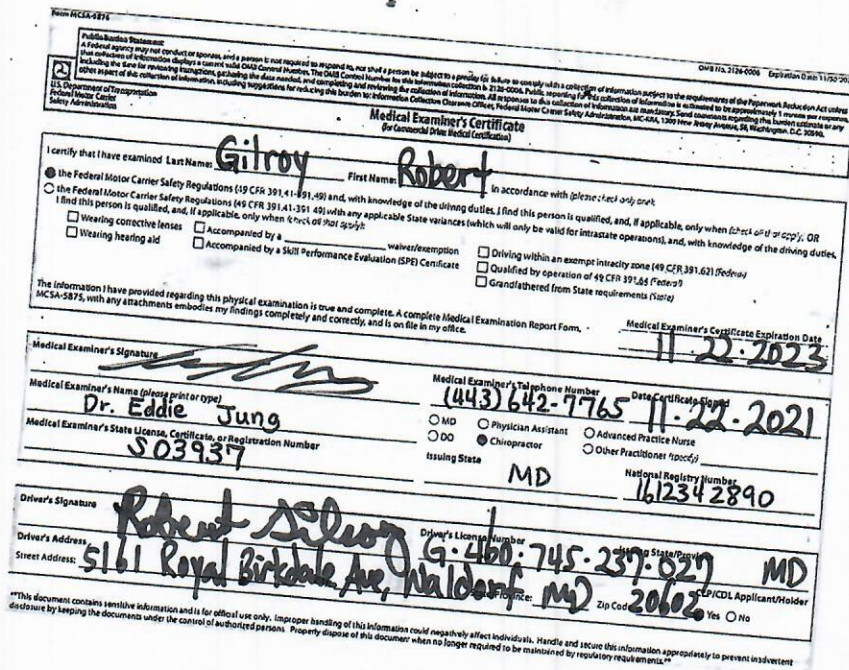 Form MCSA-5876
OMB No. 2126-0006 Expiration Date: 11/30/202
Public Burden Statement
A Federal agency may not conduct or sponsor, and a person is not required to respond to, nor shall a person be subject to a penalty for failure to comply with a collection of information subject to the requirements of the Paperwork Reduction Act unless
that collection of information displays a current valid OMB Control Number. The OMB Control Number for this information collection is 2126-0006. Public reporting for this collection of information is estimated to be approximately 1 minute per response,
including the time for reviewing instructions, gathering the data needed, and completing and reviewing the collection of information. All responses to this collection of information are mandatory. Send comments regarding this burden estimate or any
other aspect of this collection of information, including suggestions for reducing this burden to: Information Collection Clearance Officer, Federal Motor Carrier Safety Administration, MC-RRA, 1200 New Jersey Avenue, SE, Washington, D.C. 20590.
U.S. Department of Transportation
Federal Motor Carrier
Safety Administration
Medical Examiner's Certificate
(for Commercial Driver Medical Certification)
I certify that I have examined Last Name: Gilroy First Name: Robert in accordance with (please check only one):
the Federal Motor Carrier Safety Regulations (49 CFR 391.41-391.49) and, with knowledge of the driving duties, I find this person is qualified, and, if applicable, only when (check all that apply) OR
the Federal Motor Carrier Safety Regulations (49 CFR 391.41-391.49) with any applicable State variances (which will only be valid for intrastate operations), and, with knowledge of the driving duties,
I find this person is qualified, and, if applicable, only when (check all that apply):
Wearing corrective lenses Accompanied by a waiver/exemption Driving within an exempt intracity zone (49 CFR 391.62) (Federal)
Wearing hearing aid Accompanied by a Skill Performance Evaluation (SPE) Certificate Qualified by operation of 49 CFR 391.64 (Federal)
Grandfathered from State requirements (State)
The information I have provided regarding this physical examination is true and complete. A complete Medical Examination Report Form,
MCSA-5875, with any attachments embodies my findings completely and correctly, and is on file in my office.
Medical Examiner's Certificate Expiration Date
11.22.2023
Medical Examiner's Signature
Medical Examiner's Telephone Number
(443)642-7765
Date Certificate Signed
11.22.2021
Medical Examiner's Name (please print or type)
Dr. Eddie Jung
MD Physician Assistant Advanced Practice Nurse
DO Chiropractor Other Practitioner (specify)
Medical Examiner's State License, Certificate, or Registration Number
S03937
Issuing State
MD
National Registry Number
1612342890
Driver's Signature
Robert Gilroy
Driver's License Number
G.460.745.237.027
Issuing State/Province
MD
Driver's Address
Street Address: 5161 Royal Birkdale Ave, Waldorf MD Zip Code 20602
CLP/CDL Applicant/Holder
Yes No
**This document contains sensitive information and is for official use only. Improper handling of this information could negatively affect individuals. Handle and secure this information appropriately to prevent inadvertent
disclosure by keeping the documents under the control of authorized persons. Properly dispose of this document when no longer required to be maintained by regulatory requirements.**